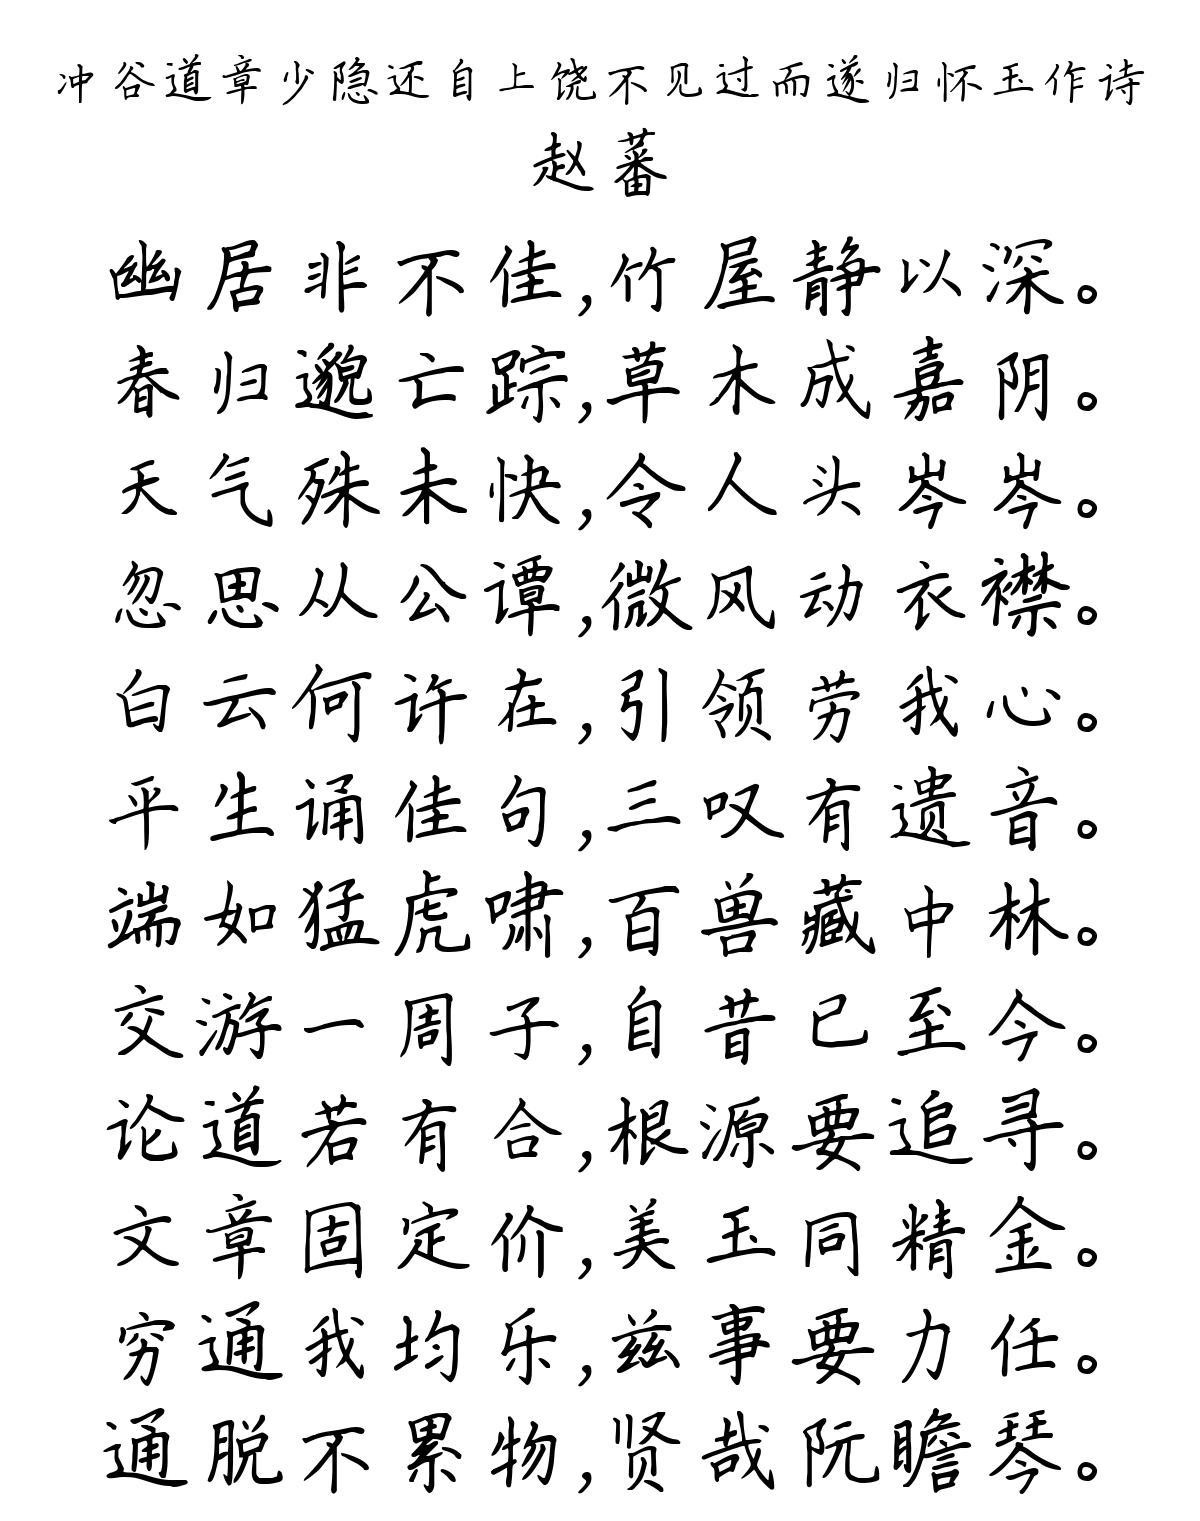 冲谷道章少隐还自上饶不见过而遂归怀玉作诗
赵蕃
幽居非不佳,竹屋静以深。
春归邈亡踪,草木成嘉阴。
天气殊未快,令人头岑岑。
忽思从公谭,微风动衣襟。
白云何许在,引领劳我心。
平生诵佳句,三叹有遗音。
端如猛虎啸,百兽藏中林。
交游一周子,自昔已至今。
论道若有合,根源要追寻。
文章固定价,美玉同精金。
穷通我均乐,兹事要力任。
通脱不累物,贤哉阮瞻琴。